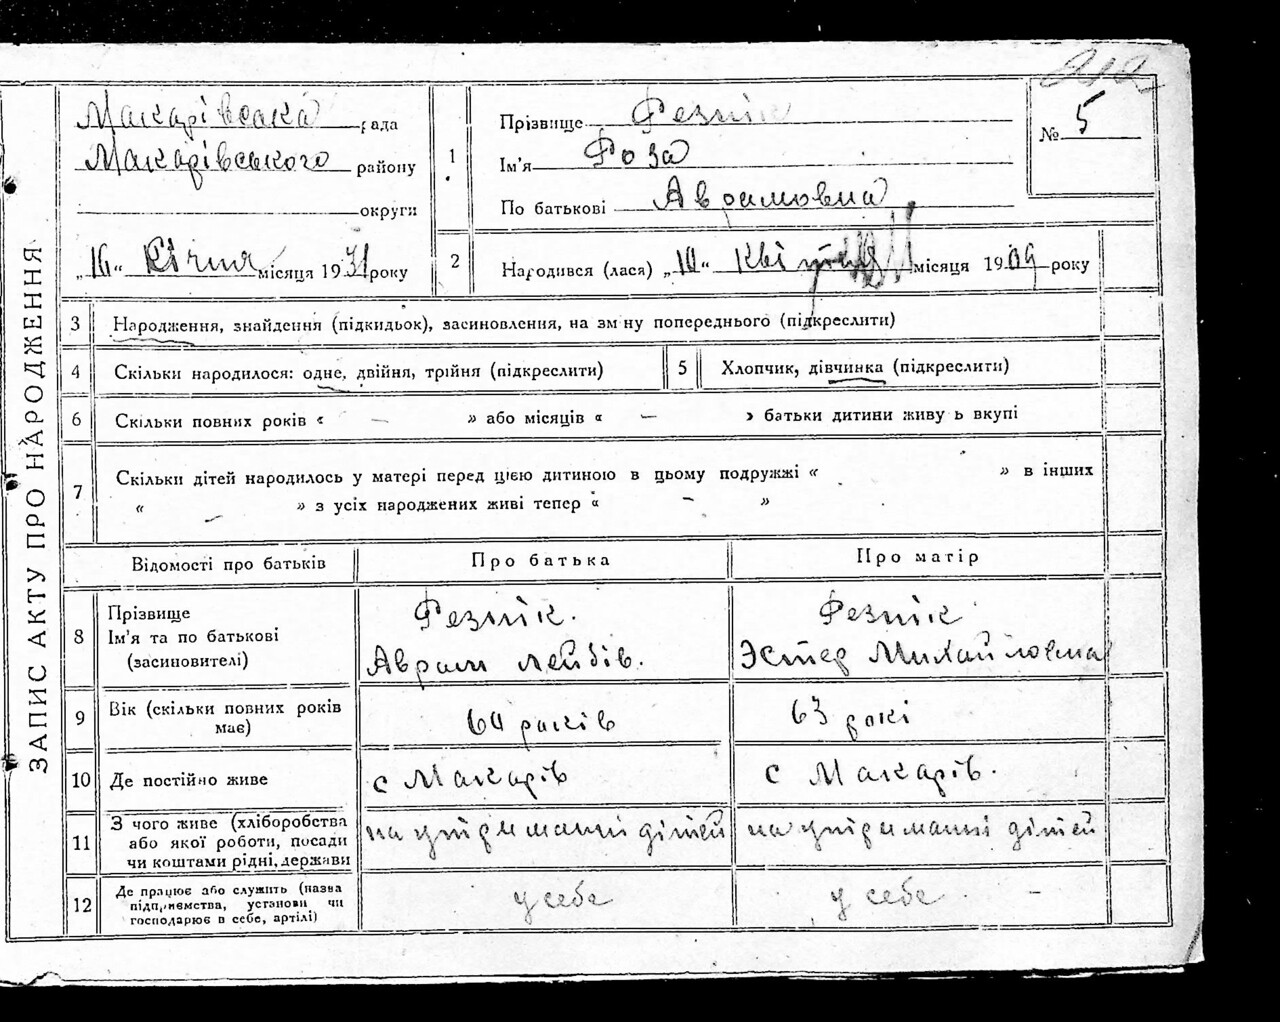 ЗАПИС АКТУ ПРО НАРОДЖЕННЯ
212
Макарівська рада
Макарівського району
округи
„16“ Січня місяця 1931 року
1
Прізвище Резнік
Ім'я Роза
По батькові Аврамовна
№ 5
2
Народився (лася) „10“ Квітня місяця 1909 року
3 Народження, знайдення (підкидьок), засиновлення, на зм ну попереднього (підкреслити)
4 Скільки народилося: одне, двійня, трійня (підкреслити)
5 Хлопчик, дівчинка (підкреслити)
6 Скільки повних років « — » або місяців « — » батьки дитини живу ь вкупі
7 Скільки дітей народилось у матері перед цією дитиною в цьому подружжі « » в інших
« — » з усіх народжених живі тепер « — »
Відомості про батьків Про батька Про матір
8 Прізвище
Ім'я та по батькові
(засиновителі)
Резнік.
Аврам Лейбів.
Резнік
Эстер Михайловна
9 Вік (скільки повних років
має)
64 років
63 рокі
10 Де постійно живе
с Макарів
с Макарів.
11 З чого живе (хліборобства
або якої роботи, посади
чи коштами рідні, держави
на утриманні дітей
на утриманні дітей
12 Де працює або служить (назва
підприємства, установи чи
господарює в себе, артілі)
у себе
у себе —